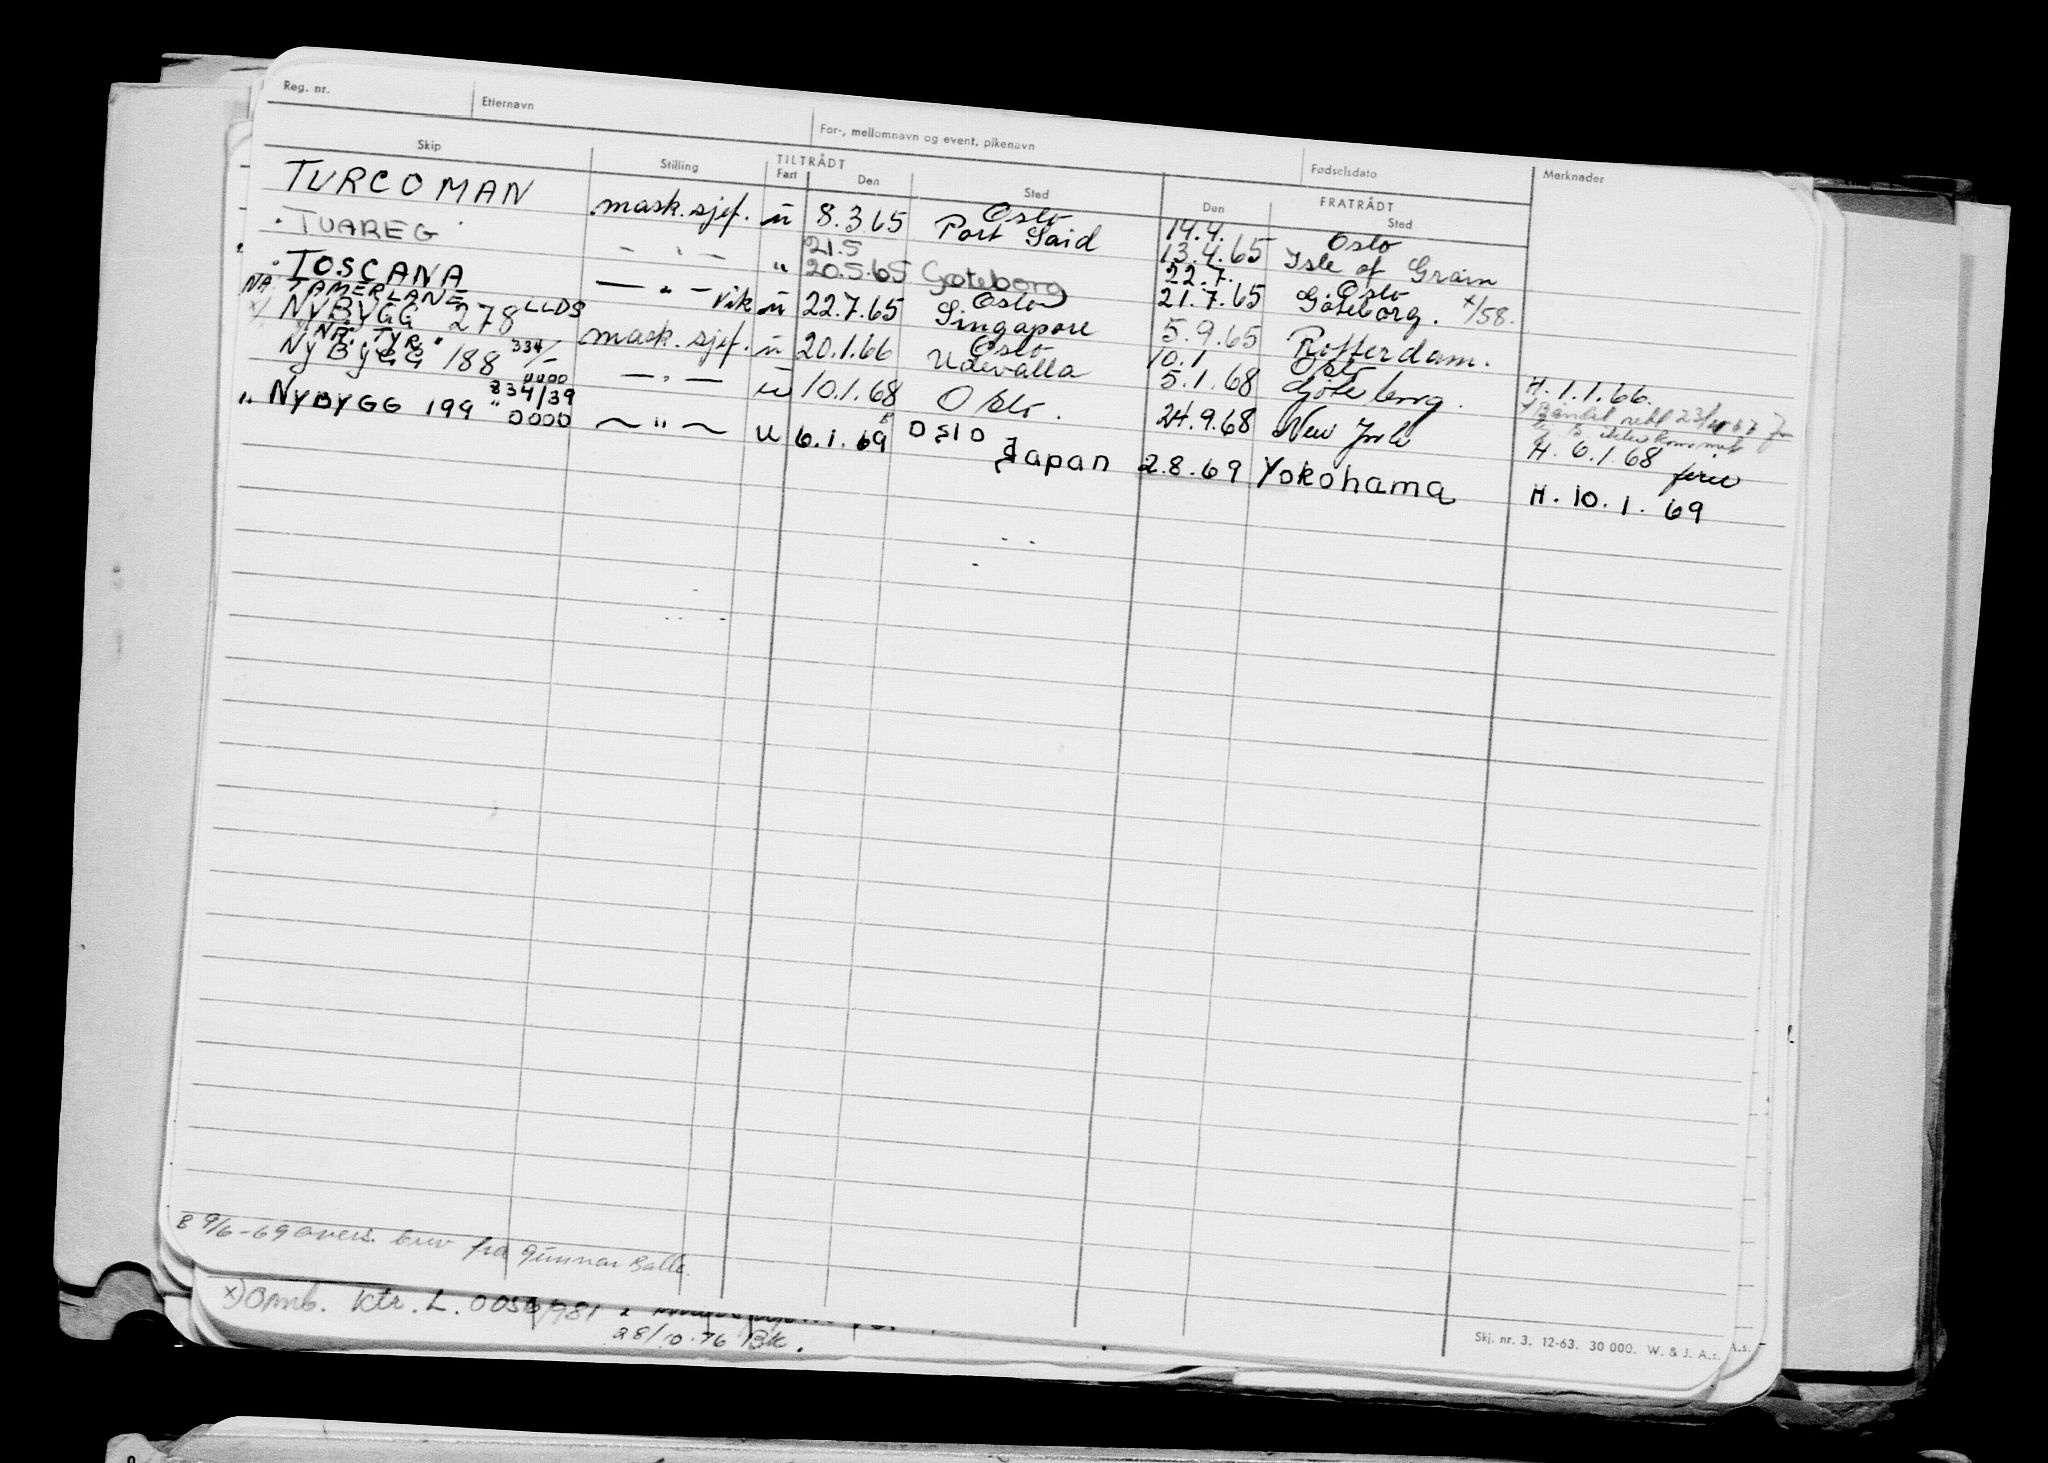 Reg. nr. Etternavn For-, mellomnavn og event. pikenavn Fødselsdato Merknader
Skip Stilling TILTRÅDT FRATRÅDT
Fart Den Sted Den Sted
TURCOMAN mask. sjef. u 8.3.65 Oslo Port Said 14.4. 13.4.65 Oslo Isle of Grain
TUAREG — " — " 21.5 20.5.65 Gøteborg 22.7. 21.7.65 Oslo Göteborg. x/58.
TOSCANA — " — vik u 22.7.65 Oslo Singapore 5.9.65 Rotterdam.
NA: TAMERLANE LLDS
x) NYBYGG 278 mask. sjef. u 20.1.66 Oslo Udevalla 10.1 5.1.68 Oslo Göteborg. H. 1.1.66.
NA: "TYR" 334/-
NYBYGG 188 0000 — " — u 10.1.68 Oslo. 24.9.68 New York H. 6.1.68 ferie
834/39
" NYBYGG 199 " 0000 — " — u 6.1.69 B OSLO Japan 2.8.69 Yokohama H. 10.1.69
B 9/6-69 overs. brev fra Gunnar Balle.
x) Omb. Ktr. L. 0056/981
28/10-76 BK.
Skj. nr. 3. 12-63. 30 000. W. & J. A.s. A.s.